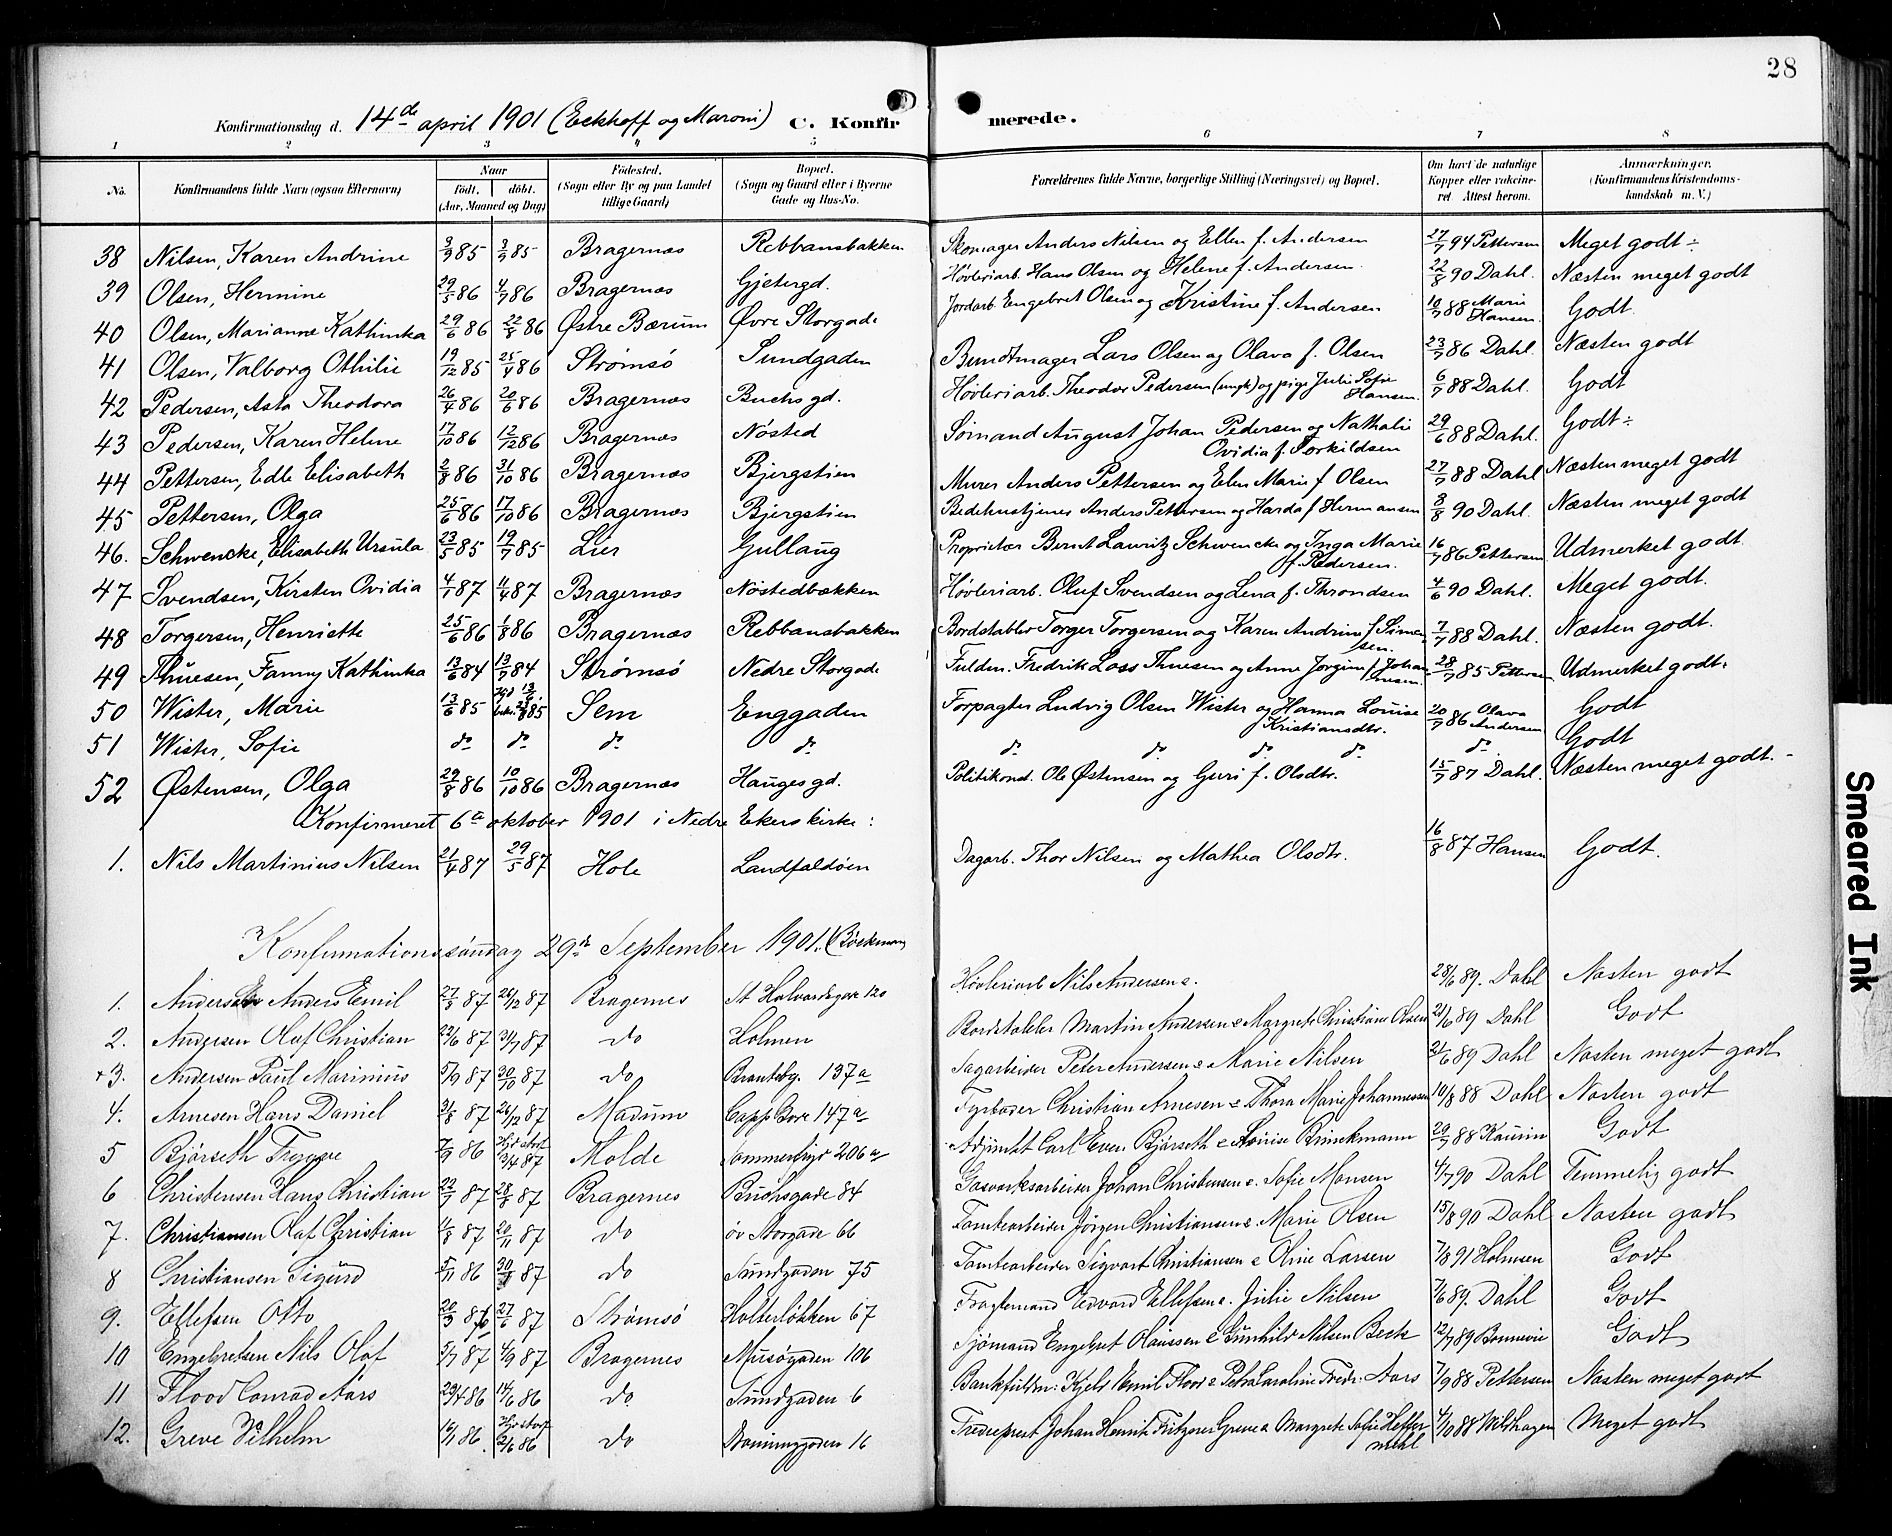 28
Konfirmationsdag d. 14de april 1901 (Eckhoff og Maroni) C. Konfirmerede.
1 2 3 4 5 6 7 8
No. Konfirmandens fulde Navn (ogsaa Efternavn) Naar Födt. döbt. (Aar, Maaned og Dag) Födested. (Sogn eller By og paa Landet tillige Gaard) Bopæl. (Sogn og Gaard eller i Byerne Gade og Hus-No. Forældrenes fulde Navne, borgerlige Stilling (Næringsvei) og Bopæl. Om havt de naturlige Kopper eller vaccineret Attest herom. Anmærkninger. (Konfirmandens Kristendomskundskab m. V.)
38 Nilsen, Karen Andrine 3/9 85 3/9 85 Bragernæs Rebbansbakken Skomager Anders Nilsen og Ellen f. Andersen 27/7 94 Pettersen Meget godt ÷
39 Olsen, Hermine 29/5 86 4/7 86 Bragernæs Gjetergd. Høvleriarb. Hans Olsen og Helene f. Andersen. 22/8 90 Dahl. Næsten meget godt
40 Olsen, Marianne Kathinka 29/6 86 22/8 86 Østre Bærum Øvre Storgade Jordarb. Engebret Olsen og Kristine f. Andersen 10/7 88 Marie Hansen Godt.
41 Olsen, Valborg Othilie 19/12 85 25/4 86 Strømsö Sundgaden Bundtmager Lars Olsen og Olava f. Olsen 23/7 86 Dahl. Næsten godt
42 Pedersen, Asta Theodora 26/4 86 20/6 86 Bragernæs Buchs gd. Høvleriarb. Theodor Pedersen (ungk) og pige Juli Sofie Hansen. 6/7 88 Dahl. Godt
43 Pedersen, Karen Helene 17/10 86 12/12 86 Bragernæs Nøsted Sømand August Johan Pedersen og Nathalie Ovidia f. Torkildsen 29/6 88 Dahl. Godt ÷
44 Pettersen, Edle Elisabeth 2/8 86 31/10 86 Bragernæs Bjergstien Murer Anders Pettersen og Elen Marie f Olsen 27/7 88 Dahl Næsten meget godt
45 Pettersen, Olga 25/6 86 17/10 86 Bragernæs Bjergstien Bedehustjener Anders Pettersen og Harda f Hermansen 8/8 90 Dahl. Næsten meget godt
46. Schwencke, Elisabeth Ursula 23/5 85 19/7 85 Lier Gullaug Proprietær Bernt Lauritz Schwencke og Inga Marie f. Pedersen. 16/7 86 Pettersen Udmerket godt
47 Svendsen, Kirsten Ovidia 4/1 87 11/4 87 Bragernæs Nøstedbækken Høvleriarb. Oluf Svendsen og Lena f. Throndsen 4/6 90 Dahl. Meget godt.
48 Torgersen, Henriette 25/6 86 1/8 86 Bragernæs Rebbansbakken Bordstabler Torger Torgersen og Karen Andrine f Simensen. 7/7 88 Dahl. Næsten godt.
49 Thuesen, Fanny Kathinka 13/6 84 13/7 84 Strømsö Nedre Storgade Fuldm. Fredrik Lass Thuesen og Anne Jorgine f. Johannesen. 28/7 85 Pettersen Udmerket godt.
50 Wister, Marie 13/6 85 Hjd 13/6 bekr. 23/8 85 Sem Enggaden Forpagter Ludvig Olsen Wister og Hanna Louise Kristiansdtr. 20/7 86 Olava Andersen Godt
51 Wister, Sofie do do do do do do do do do Godt
52 Østensen, Olga 29/8 86 10/10 86 Bragernæs Hauges gd. Politikonst. Ole Østensen og Guri f. Olsdtr. 15/7 87 Dahl. Næsten meget godt. -
Konfirmeret 6te oktober 1901 i Nedre Ekers kirke:
1. Nils Martinius Nilsen 21/4 87 29/5 87 Hole Landfaldöen Dagarb. Thor Nilsen og Mathea Olsdtr. 16/8 87 Hansen Godt.
Konfirmationssöndag 29de September 1901. (Böckman)
1. Andersen Anders Emil 27/8 87 26/12 87 Bragernes St Halvardsgave 120 Høvleriarb Nils Andersen &. 28/6 89. Dahl Nasten godt
2. Andersen Olaf Christian 22/6 87 31/7 87 do Holmen Bordstabler Martin Andersen & Margrete Christiane Olsen 21/6 89 Dahl Godt
+3. Andersen Paul Marinius 5/9 87 30/10 87 do Brantebg. 137a Sagarbeider Peter Andersen & Marie Nilsen 21/6 89 Dahl Nasten meget godt
4. Arnesen Hans Daniel 31/8 87 26/12 87 Modum Capp Gave 147a Fyrbøder Christian Arnesen & Thora Marie Johannessen 10/8 88 Dahl Nasten godt
5 Björseth Tryggve 7/9 86 Hjd döbt 13/4 87 Molde Sommerlyst 206a Adjunkt Carl Even Bjørseth & Louise Brinckmann 29/7 88 Kaurin Godt
6 Christensen Hans Christian 22/7 87 28/8 87 Bragernes Buchsgade 84 Gasværksarbeider Johan Christensen &. Sofie Monsen 4/7 90 Dahl Temmelig godt
7. Christiansen Olaf Christian 11/8 87 20/11 87 do öv Storgade 66 Tomtearbeider Jörgen Christiansen & Marie Olsen 15/8 90 Dahl Nasten godt
8 Christiansen Sigurd 5/11 86 30/5 87 do Sundgaden 75 Tomtearbeider Sigvart Christiansen & Oline Larsen 7/8 91 Holmsen Godt
9. Ellefsen Otto 20/3 87 27/6 87 Strömsö Holterlökken 67 Fragtemand Edvard Ellefsen &. Julie Nilsen 7/6 89. Dahl Godt
10 Engebretsen Nils Olaf 5/7 87 4/9 87 Bragernes Musögaden 106 Sjömand Engebret Olaussen & Gunhild Nilsen Beck 12/7 89 Bonnevie Godt
11 Flood Conrad Aars 29/4 86 14/6 86 do Sundgaden 6 Bankfuldm: Kjeld Emil Flood & Petra Caroline Fredr. Aars 7/9 88 Pettersen Nasten meget godt
12. Greve Vilhelm 15/1 86. Hjd döbt 2/6 86 do 16 Johan Henrik Fritzner Greve & Margrete Sofie Heffermehl 4/10 88 Wildhagen Meget godt
Smeared Ink